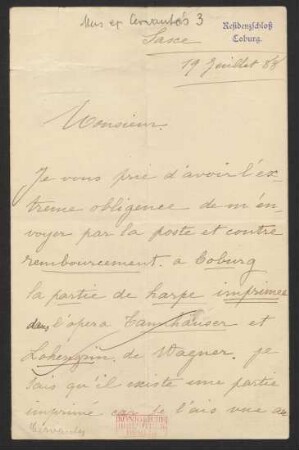 Mus ep Cervantes 3
Residenzschloß
Coburg.
Saxe
19 Juillet 88
Monsieur.
Je vous prie d'avoir l'ex-
treme obligence de m'en-
voyer par la poste et contre
remboursement. a Coburg
la partie de harpe imprimée
dans l'opera Tannhäuser et
Lohengrin. de Wagner. je
sais qu'il existe une partie
imprimé car je l'ais vue au